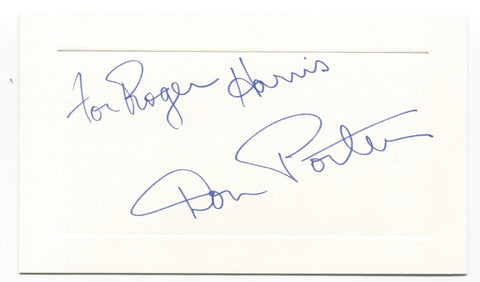 for Roger Harris
Don Porter